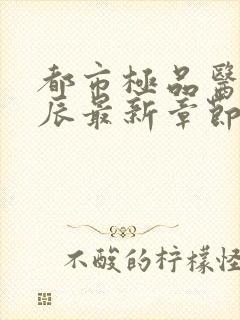 都市極品醫
辰最新章節
不酸的柠檬怪